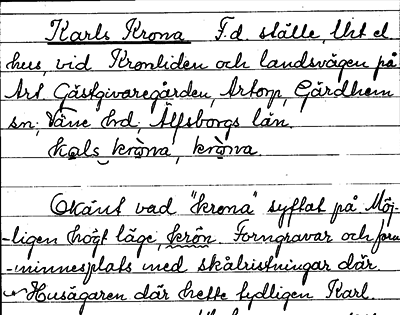 Karls Krona F.d. ställe, litet
hus, vid Kronliden och landsvägen på
Art. Gästgivaregården, Artorp, Gärdhem
sn; Väne hd, Älfsborgs län.
kals kròna, kròna.
Okänt vad "krona" syftat på Möj-
-ligen högt läge, krön. Forngravar och forn
-minnesplats med skålristningar där.
Husägaren där hette tydligen Karl.